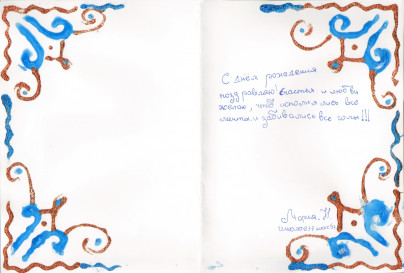 С днём рождения
поздравляю! Счастья и любви
желаю, чтоб исполнялись все
мечты и забивались все голы!!!
Мария. Н.